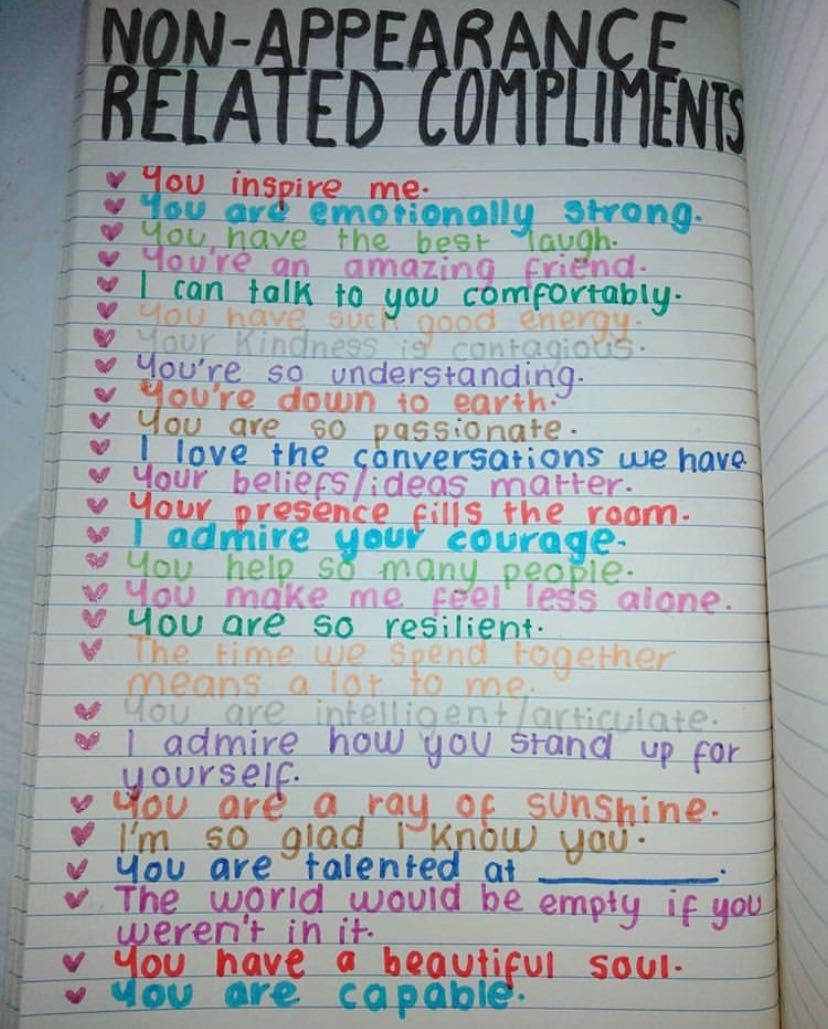 NON-APPEARANCE
RELATED COMPLIMENTS
You inspire me.
You are emotionally strong.
You have the best laugh.
You're an amazing friend.
I can talk to you comfortably.
You have such good energy.
Your Kindness is contagious.
You're so understanding.
You're down to earth.
You are so passionate.
I love the conversations we have.
Your beliefs/ideas matter.
Your presence fills the room.
I admire your courage.
You help so many people.
You make me feel less alone.
You are so resilient.
The time we spend together
means a lot to me.
You are intelligent/articulate.
I admire how you stand up for
yourself.
You are a ray of sunshine.
I'm so glad I know you.
You are talented at __________.
The world would be empty if you
weren't in it.
You have a beautiful soul.
You are capable.